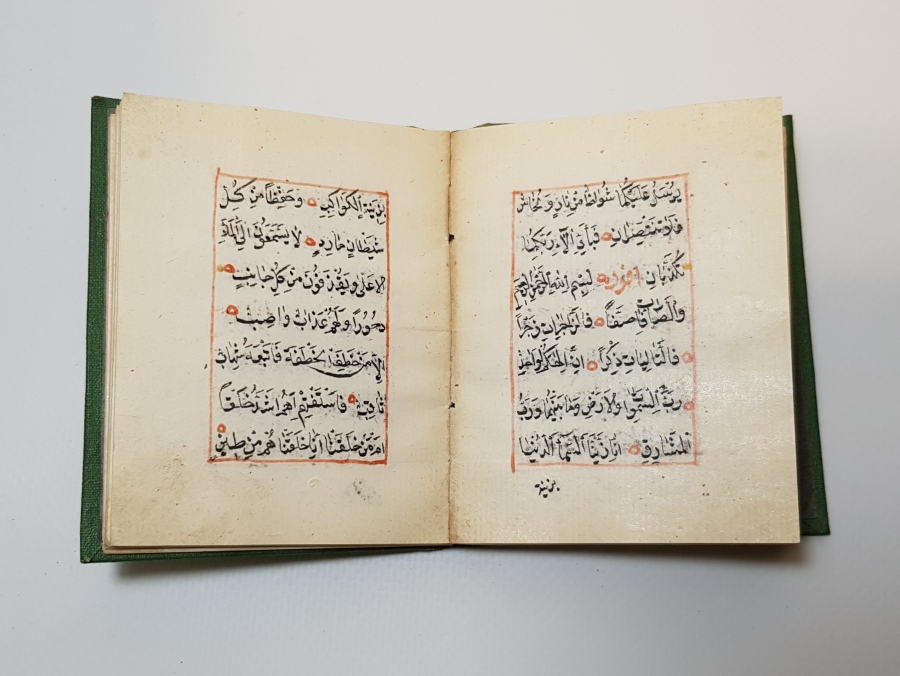 يُرْسَلُ عَلَيْكُمَا شُوَاظٌ مِنْ نَارٍ وَنُحَاسٌ
فَلَا تَنْتَصِرَانِ فَبِأَيِّ آلَاءِ رَبِّكُمَا
تُكَذِّبَانِ بِسْمِ اللهِ الرَّحْمٰنِ الرَّحِيمِ
وَالصَّافَّاتِ صَفًّا فَالزَّاجِرَاتِ زَجْرًا
فَالتَّالِيَاتِ ذِكْرًا اِنَّ اِلٰهَكُمْ لَوَاحِدٌ
رَبُّ السَّمٰوَاتِ وَالْاَرْضِ وَمَا بَيْنَهُمَا وَرَبُّ
الْمَشَارِقِ اِنَّا زَيَّنَّا السَّمَاءَ الدُّنْيَا
بزينة
بِزِينَةِ الْكَوَاكِبِ وَحِفْظًا مِنْ كُلِّ
شَيْطَانٍ مَارِدٍ لَا يَسَّمَّعُونَ اِلَى الْمَلَاِ
الْاَعْلٰى وَيُقْذَفُونَ مِنْ كُلِّ جَانِبٍ
دُحُورًا وَلَهُمْ عَذَابٌ وَاصِبٌ
اِلَّا مَنْ خَطِفَ الْخَطْفَةَ فَاَتْبَعَهُ شِهَابٌ
ثَاقِبٌ فَاسْتَفْتِهِمْ اَهُمْ اَشَدُّ خَلْقًا
اَمْ مَنْ خَلَقْنَا اِنَّا خَلَقْنَاهُمْ مِنْ طِينٍ